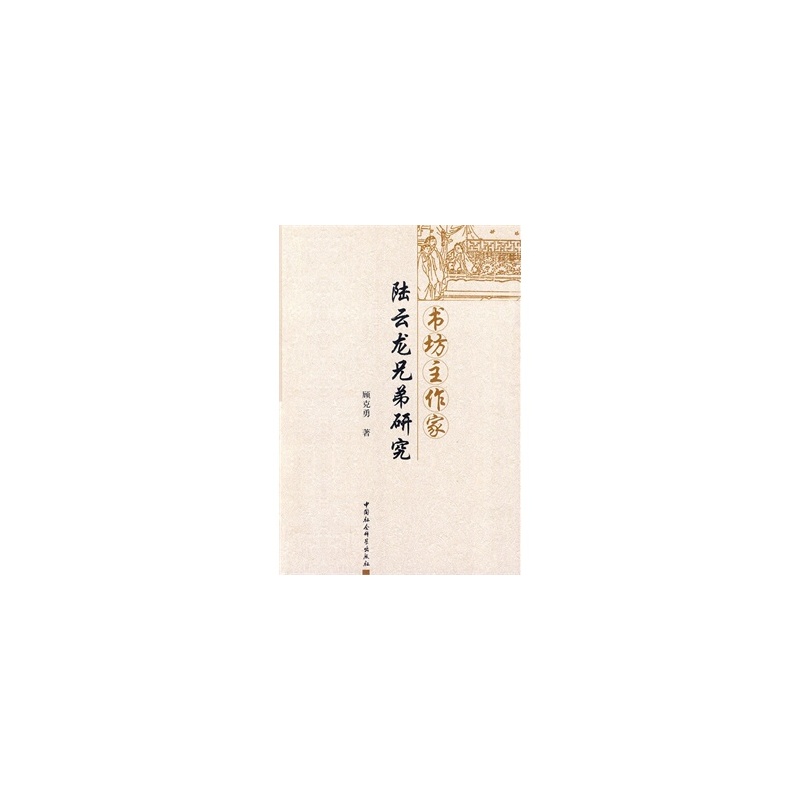 书坊主作家
陆云龙兄弟研究
顾克勇 著
中国社会科学出版社